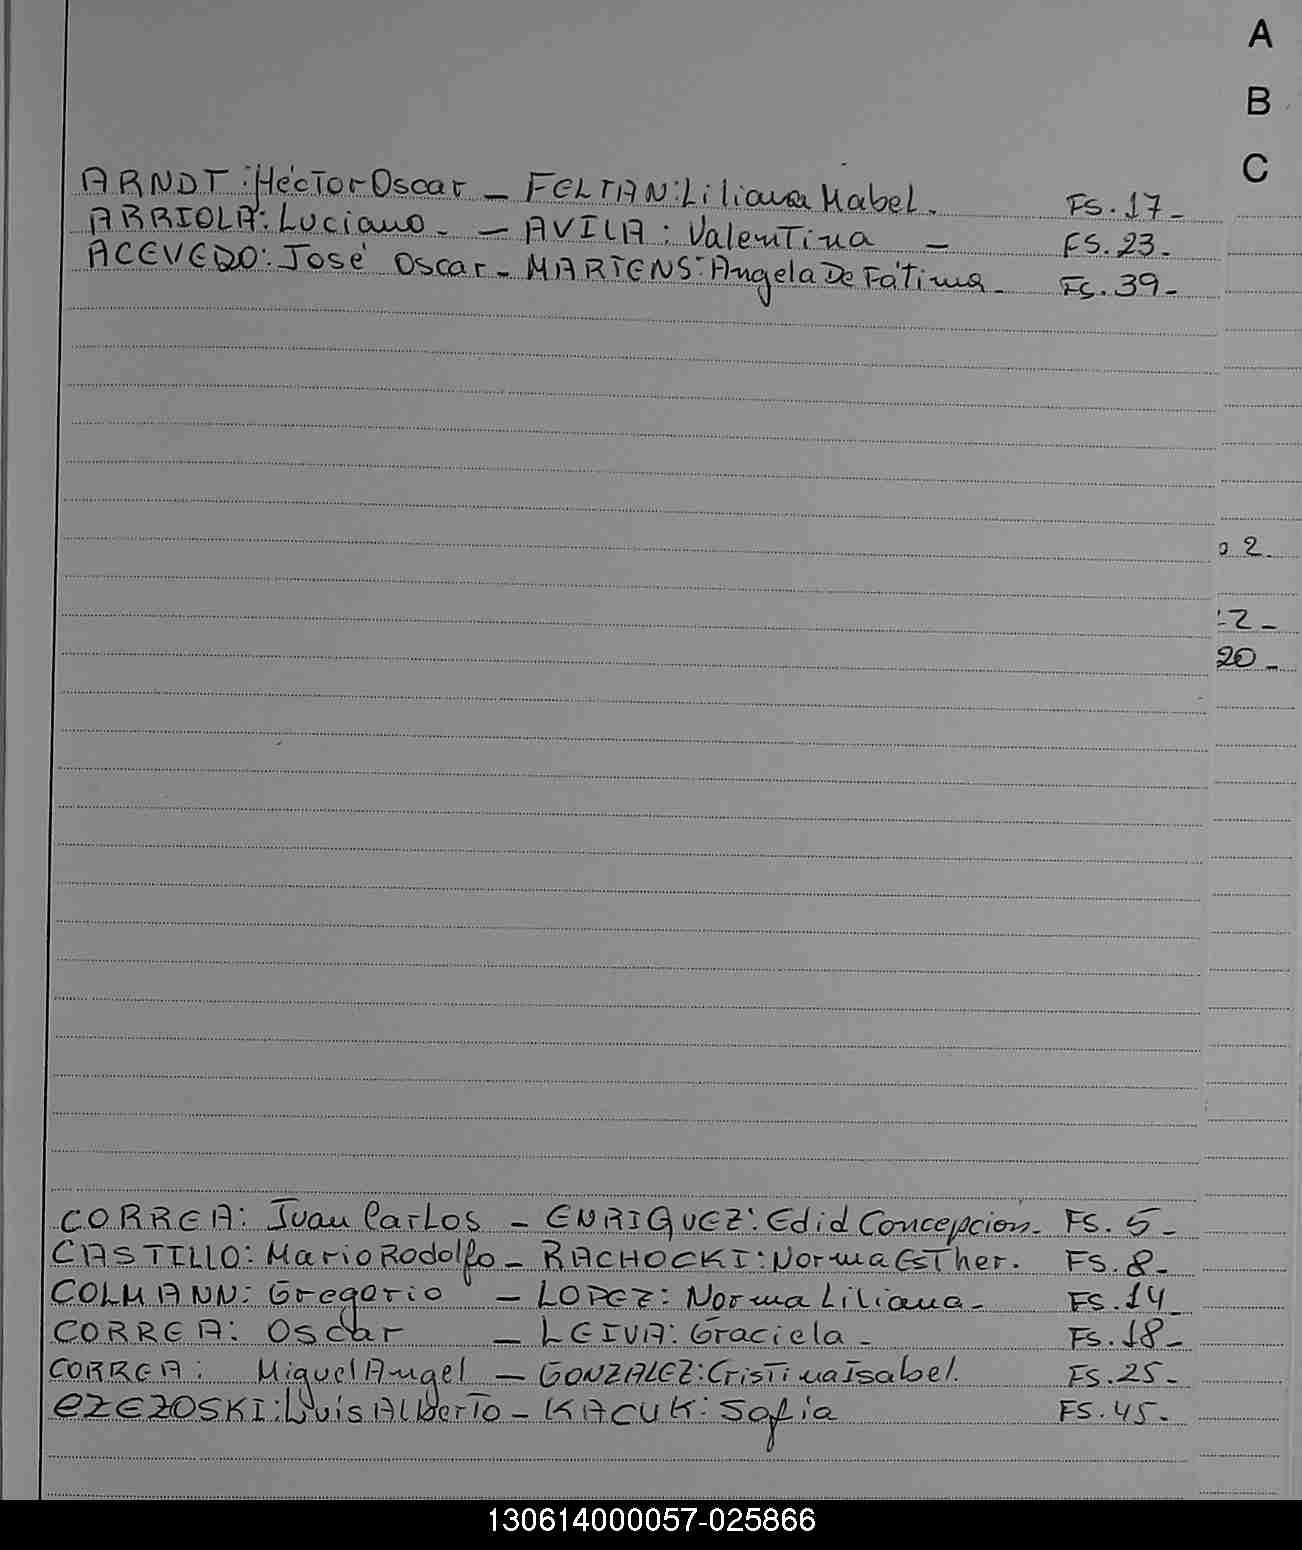 A
B
C
ARNDT: Héctor Oscar - FELTAN: Liliana Mabel. FS. 17-
ARRIOLA: Luciano. - AVILA: Valentina - FS. 23.
ACEVEDO: José Oscar - MARTENS: Angela De Fátima. FS. 39-
2.
12-
20-
CORREA: Juan Carlos - ENRIQUEZ: Edid Concepción. FS. 5-
CASTILLO: Mario Rodolfo - RACHOCKI: Norma Esther. FS. 8-
COLMANN: Gregorio - LOPEZ: Norma Liliana - FS. 14-
CORREA: Oscar - LEIVA: Graciela - FS. 18-
CORREA: Miguel Angel - GONZALEZ: Cristina Isabel. FS. 25-
CZEZOSKI: Luis Alberto - KACUK: Sofia FS. 45-
130614000057-025866